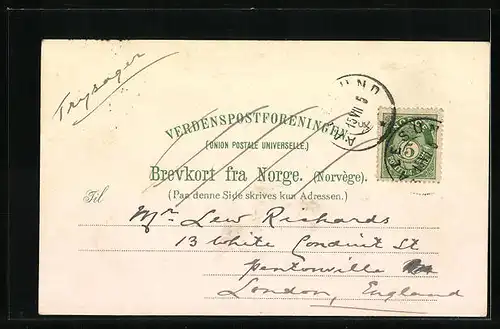 Trysager
VERDENSPOSTFORENINGEN
(UNION POSTALE UNIVERSELLE.)
Brevkort fra Norge. (Norvège).
(Paa denne Side skrives kun Adressen.)
Til
Mr Lew Richards
13 White Conduit St
Pentonville
London, England
5